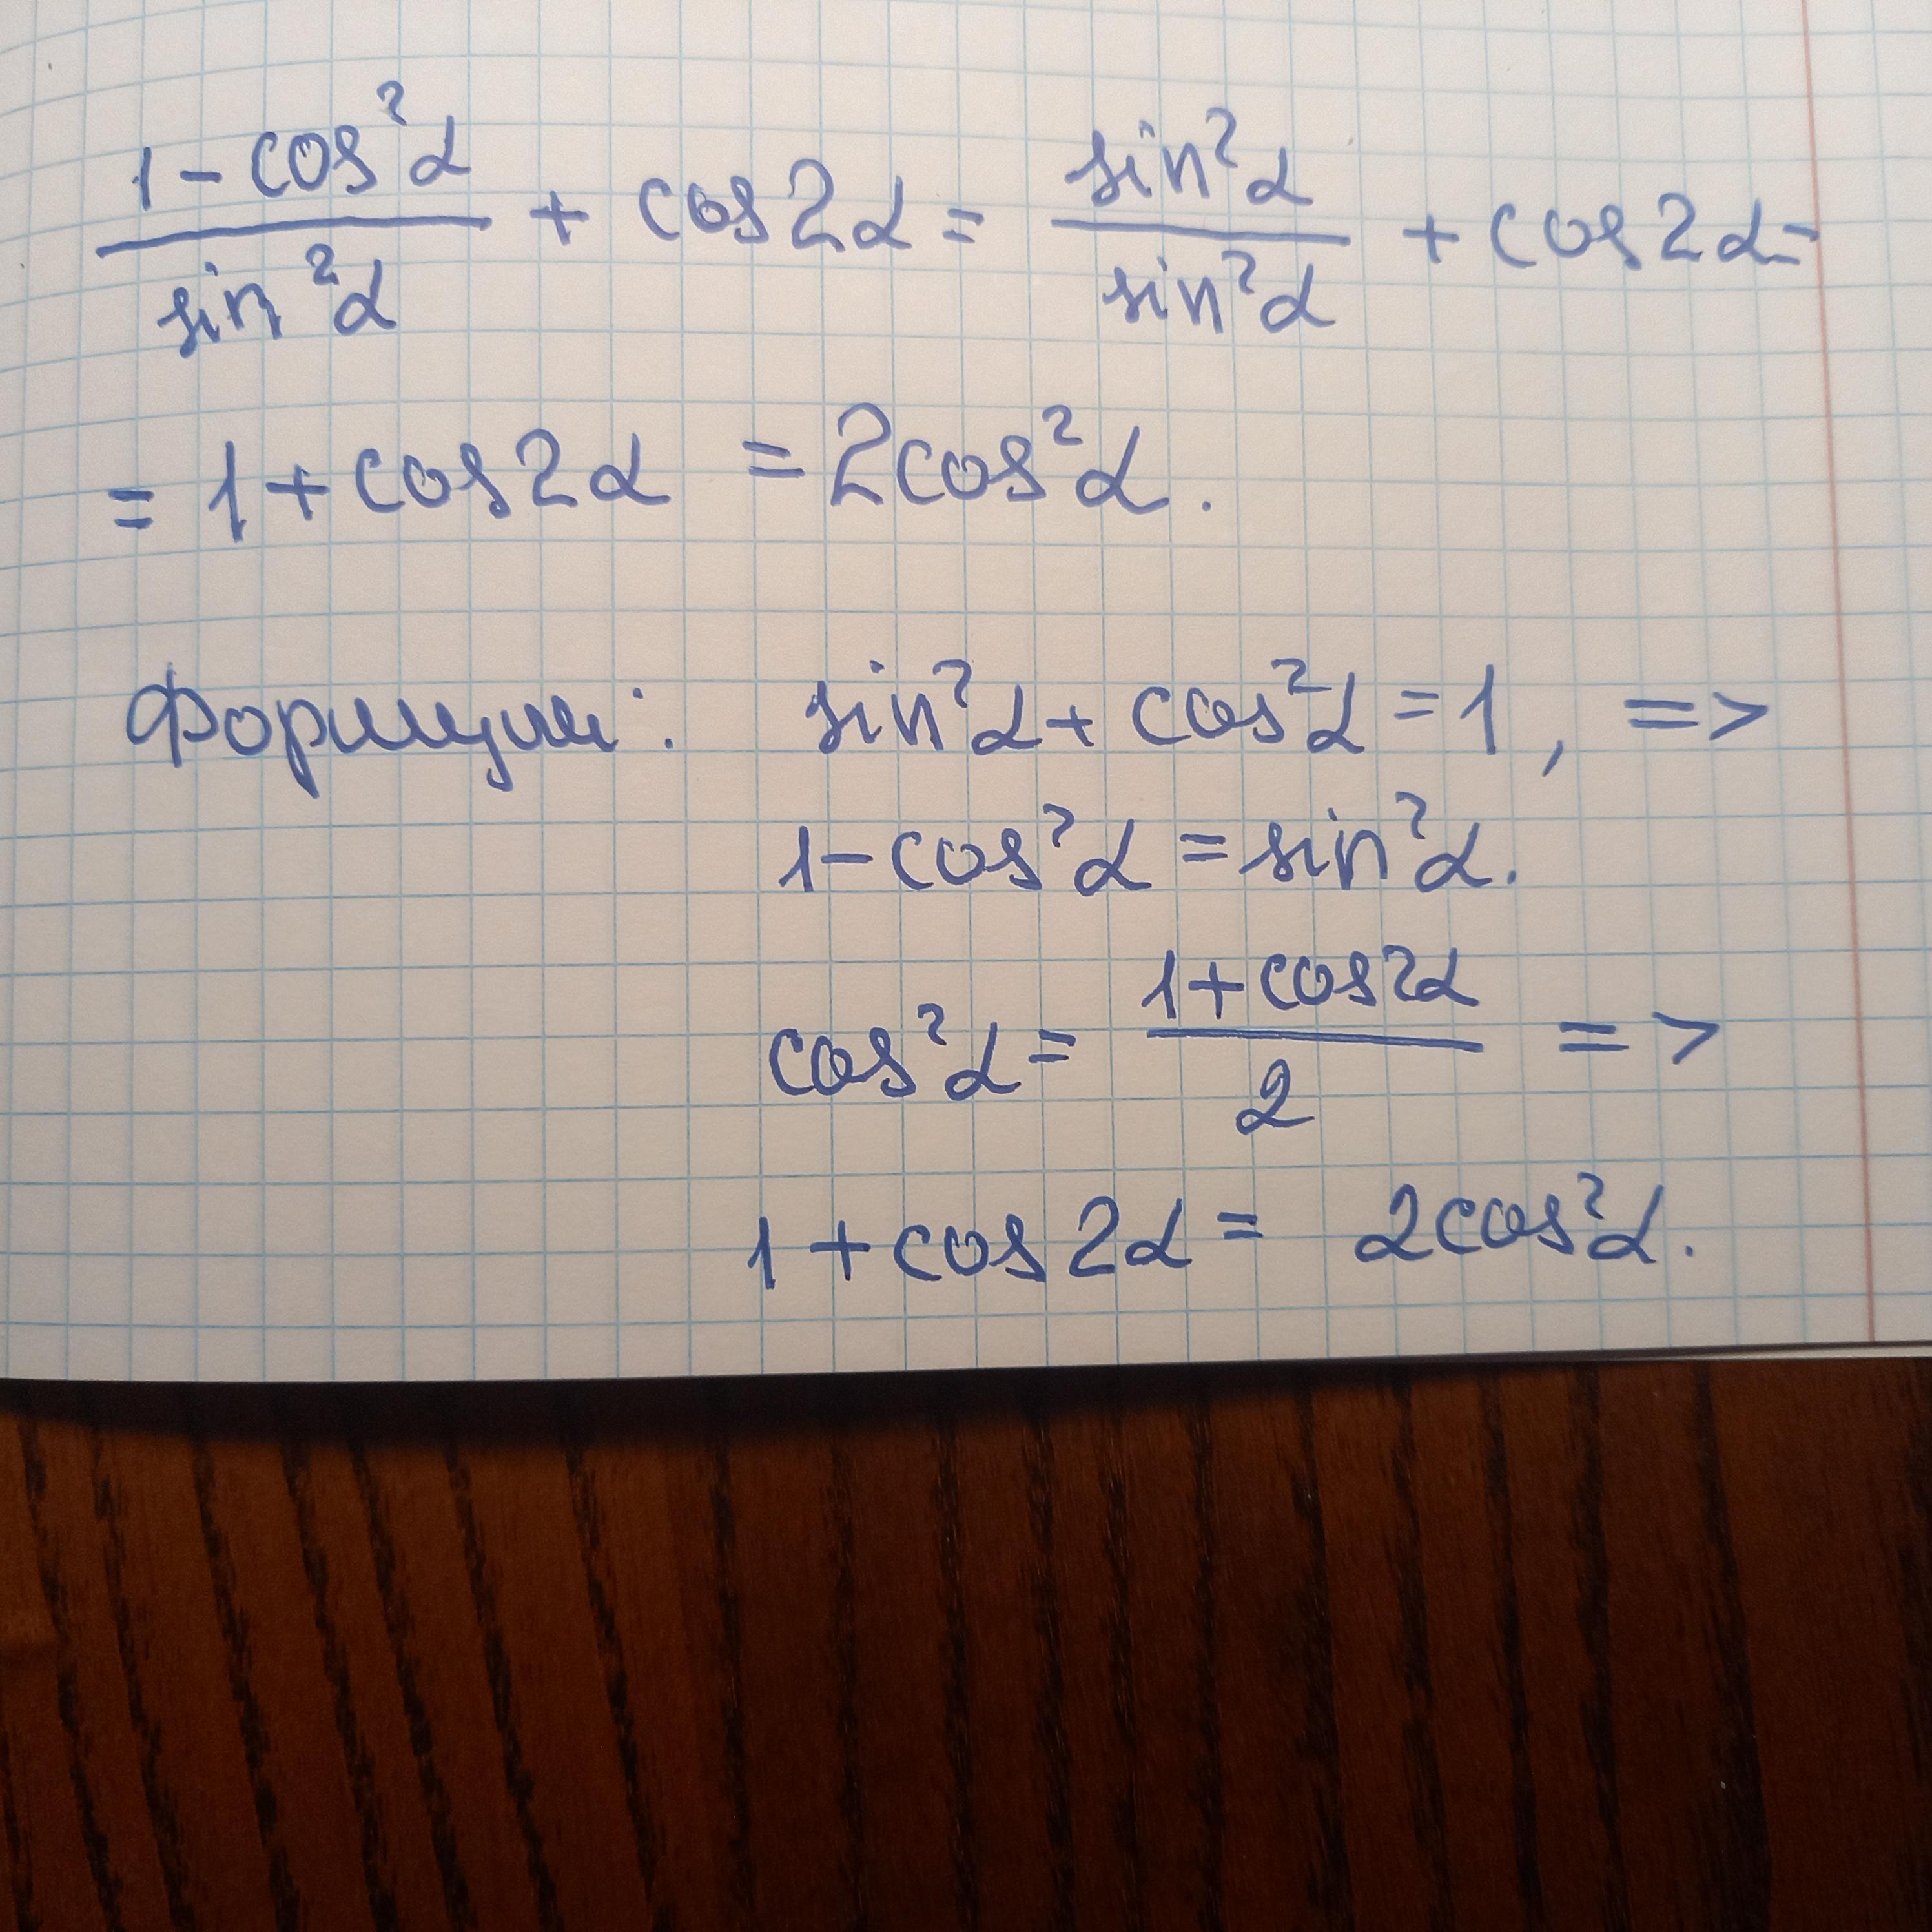 (1 - cos²α)/(sin²α) + cos2α = (sin²α)/(sin²α) + cos2α =
= 1 + cos2α = 2cos²α.
Формулы: sin²α + cos²α = 1, =>
1 - cos²α = sin²α.
cos²α = (1 + cos2α)/2 =>
1 + cos2α = 2cos²α.